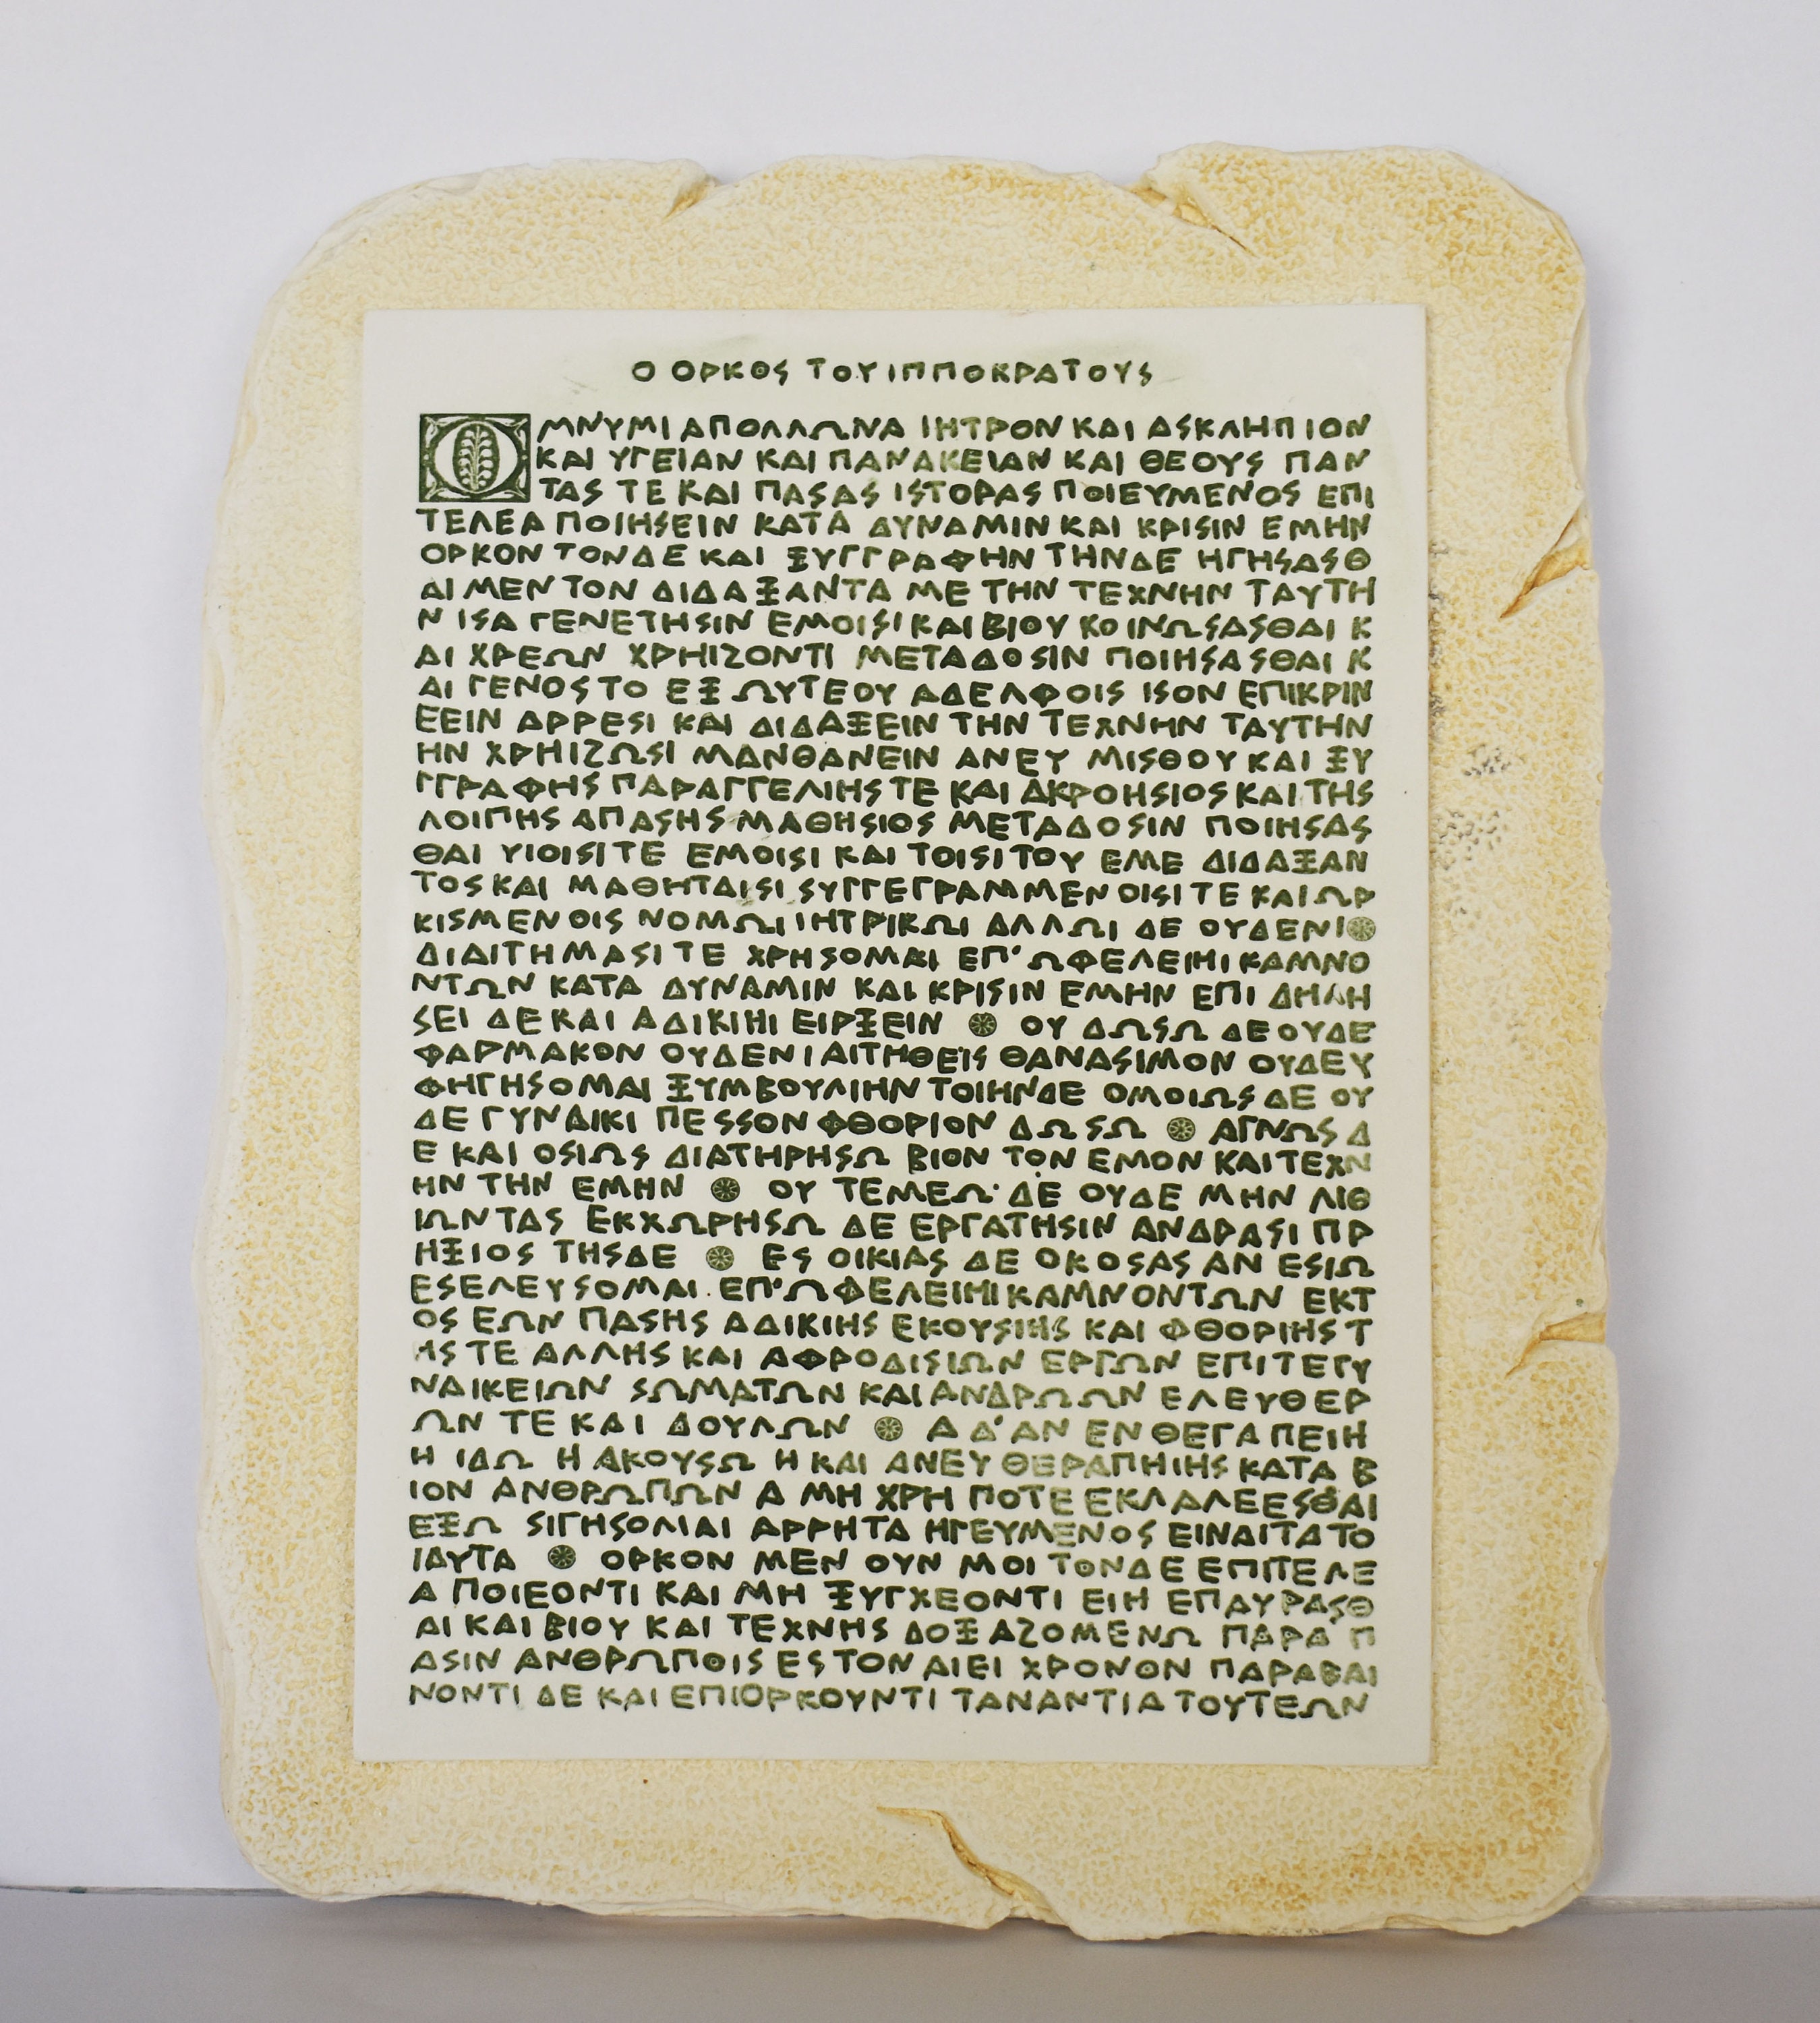 Ο ΟΡΚΟΣ ΤΟΥ ΙΠΠΟΚΡΑΤΟΥΣ
ΟΜΝΥΜΙ ΑΠΟΛΛΩΝΑ ΙΗΤΡΟΝ ΚΑΙ ΑΣΚΛΗΠΙΟΝ
ΚΑΙ ΥΓΕΙΑΝ ΚΑΙ ΠΑΝΑΚΕΙΑΝ ΚΑΙ ΘΕΟΥΣ ΠΑΝ
ΤΑΣ ΤΕ ΚΑΙ ΠΑΣΑΣ ΙΣΤΟΡΑΣ ΠΟΙΕΥΜΕΝΟΣ ΕΠΙ
ΤΕΛΕΑ ΠΟΙΗΣΕΙΝ ΚΑΤΑ ΔΥΝΑΜΙΝ ΚΑΙ ΚΡΙΣΙΝ ΕΜΗΝ
ΟΡΚΟΝ ΤΟΝΔΕ ΚΑΙ ΞΥΓΓΡΑΦΗΝ ΤΗΝΔΕ ΗΓΗΣΑΣΘ
ΑΙ ΜΕΝ ΤΟΝ ΔΙΔΑΞΑΝΤΑ ΜΕ ΤΗΝ ΤΕΧΝΗΝ ΤΑΥΤΗ
Ν ΙΣΑ ΓΕΝΕΤΗΣΙΝ ΕΜΟΙΣΙ ΚΑΙ ΒΙΟΥ ΚΟΙΝΩΣΑΣΘΑΙ Κ
ΑΙ ΧΡΕΩΝ ΧΡΗΙΖΟΝΤΙ ΜΕΤΑΔΟΣΙΝ ΠΟΙΗΣΑΣΘΑΙ Κ
ΑΙ ΓΕΝΟΣ ΤΟ ΕΞ ΩΥΤΕΟΥ ΑΔΕΛΦΟΙΣ ΙΣΟΝ ΕΠΙΚΡΙΝ
ΕΕΙΝ ΑΡΡΕΣΙ ΚΑΙ ΔΙΔΑΞΕΙΝ ΤΗΝ ΤΕΧΝΗΝ ΤΑΥΤΗΝ
ΗΝ ΧΡΗΙΖΩΣΙ ΜΑΝΘΑΝΕΙΝ ΑΝΕΥ ΜΙΣΘΟΥ ΚΑΙ ΞΥ
ΓΓΡΑΦΗΣ ΠΑΡΑΓΓΕΛΙΗΣ ΤΕ ΚΑΙ ΑΚΡΟΗΣΙΟΣ ΚΑΙ ΤΗΣ
ΛΟΙΠΗΣ ΑΠΑΣΗΣ ΜΑΘΗΣΙΟΣ ΜΕΤΑΔΟΣΙΝ ΠΟΙΗΣΑΣ
ΘΑΙ ΥΙΟΙΣΙ ΤΕ ΕΜΟΙΣΙ ΚΑΙ ΤΟΙΣΙ ΤΟΥ ΕΜΕ ΔΙΔΑΞΑΝ
ΤΟΣ ΚΑΙ ΜΑΘΗΤΑΙΣΙ ΣΥΓΓΕΓΡΑΜΜΕΝΟΙΣΙ ΤΕ ΚΑΙ ΩΡ
ΚΙΣΜΕΝΟΙΣ ΝΟΜΩΙ ΙΗΤΡΙΚΩΙ ΑΛΛΩΙ ΔΕ ΟΥΔΕΝΙ
ΔΙΑΙΤΗΜΑΣΙ ΤΕ ΧΡΗΣΟΜΑΙ ΕΠ' ΩΦΕΛΕΙΗΙ ΚΑΜΝΟ
ΝΤΩΝ ΚΑΤΑ ΔΥΝΑΜΙΝ ΚΑΙ ΚΡΙΣΙΝ ΕΜΗΝ ΕΠΙ ΔΗΛΗ
ΣΕΙ ΔΕ ΚΑΙ ΑΔΙΚΙΗΙ ΕΙΡΞΕΙΝ ΟΥ ΔΩΣΩ ΔΕ ΟΥΔΕ
ΦΑΡΜΑΚΟΝ ΟΥΔΕΝΙ ΑΙΤΗΘΕΙΣ ΘΑΝΑΣΙΜΟΝ ΟΥΔΕ Υ
ΦΗΓΗΣΟΜΑΙ ΞΥΜΒΟΥΛΙΗΝ ΤΟΙΗΝΔΕ ΟΜΟΙΩΣ ΔΕ ΟΥ
ΔΕ ΓΥΝΑΙΚΙ ΠΕΣΣΟΝ ΦΘΟΡΙΟΝ ΔΩΣΩ ΑΓΝΩΣ Δ
Ε ΚΑΙ ΟΣΙΩΣ ΔΙΑΤΗΡΗΣΩ ΒΙΟΝ ΤΟΝ ΕΜΟΝ ΚΑΙ ΤΕΧΝ
ΗΝ ΤΗΝ ΕΜΗΝ ΟΥ ΤΕΜΕΩ ΔΕ ΟΥΔΕ ΜΗΝ ΛΙΘ
ΙΩΝΤΑΣ ΕΚΧΩΡΗΣΩ ΔΕ ΕΡΓΑΤΗΣΙΝ ΑΝΔΡΑΣΙ ΠΡ
ΗΞΙΟΣ ΤΗΣΔΕ ΕΣ ΟΙΚΙΑΣ ΔΕ ΟΚΟΣΑΣ ΑΝ ΕΣΙΩ
ΕΣΕΛΕΥΣΟΜΑΙ ΕΠ' ΩΦΕΛΕΙΗΙ ΚΑΜΝΟΝΤΩΝ ΕΚΤ
ΟΣ ΕΩΝ ΠΑΣΗΣ ΑΔΙΚΙΗΣ ΕΚΟΥΣΙΗΣ ΚΑΙ ΦΘΟΡΙΗΣ Τ
ΗΣ ΤΕ ΑΛΛΗΣ ΚΑΙ ΑΦΡΟΔΙΣΙΩΝ ΕΡΓΩΝ ΕΠΙ ΤΕ ΓΥ
ΝΑΙΚΕΙΩΝ ΣΩΜΑΤΩΝ ΚΑΙ ΑΝΔΡΩΩΝ ΕΛΕΥΘΕΡ
ΩΝ ΤΕ ΚΑΙ ΔΟΥΛΩΝ Α Δ'ΑΝ ΕΝ ΘΕΓΑΠΕΙΗ
Η ΙΔΩ Η ΑΚΟΥΣΩ Η ΚΑΙ ΑΝΕΥ ΘΕΡΑΠΗΙΗΣ ΚΑΤΑ Β
ΙΟΝ ΑΝΘΡΩΠΩΝ Α ΜΗ ΧΡΗ ΠΟΤΕ ΕΚΛΑΛΕΕΣΘΑΙ
ΕΞΩ ΣΙΓΗΣΟΜΑΙ ΑΡΡΗΤΑ ΗΓΕΥΜΕΝΟΣ ΕΙΝΑΙ ΤΑ ΤΟ
ΙΑΥΤΑ ΟΡΚΟΝ ΜΕΝ ΟΥΝ ΜΟΙ ΤΟΝΔΕ ΕΠΙΤΕΛΕ
Α ΠΟΙΕΟΝΤΙ ΚΑΙ ΜΗ ΞΥΓΧΕΟΝΤΙ ΕΙΗ ΕΠΑΥΡΑΣΘ
ΑΙ ΚΑΙ ΒΙΟΥ ΚΑΙ ΤΕΧΝΗΣ ΔΟΞΑΖΟΜΕΝΩ ΠΑΡΑ Π
ΑΣΙΝ ΑΝΘΡΩΠΟΙΣ ΕΣ ΤΟΝ ΑΙΕΙ ΧΡΟΝΟΝ ΠΑΡΑΒΑΙ
ΝΟΝΤΙ ΔΕ ΚΑΙ ΕΠΙΟΡΚΟΥΝΤΙ ΤΑΝΑΝΤΙΑ ΤΟΥΤΕΩΝ